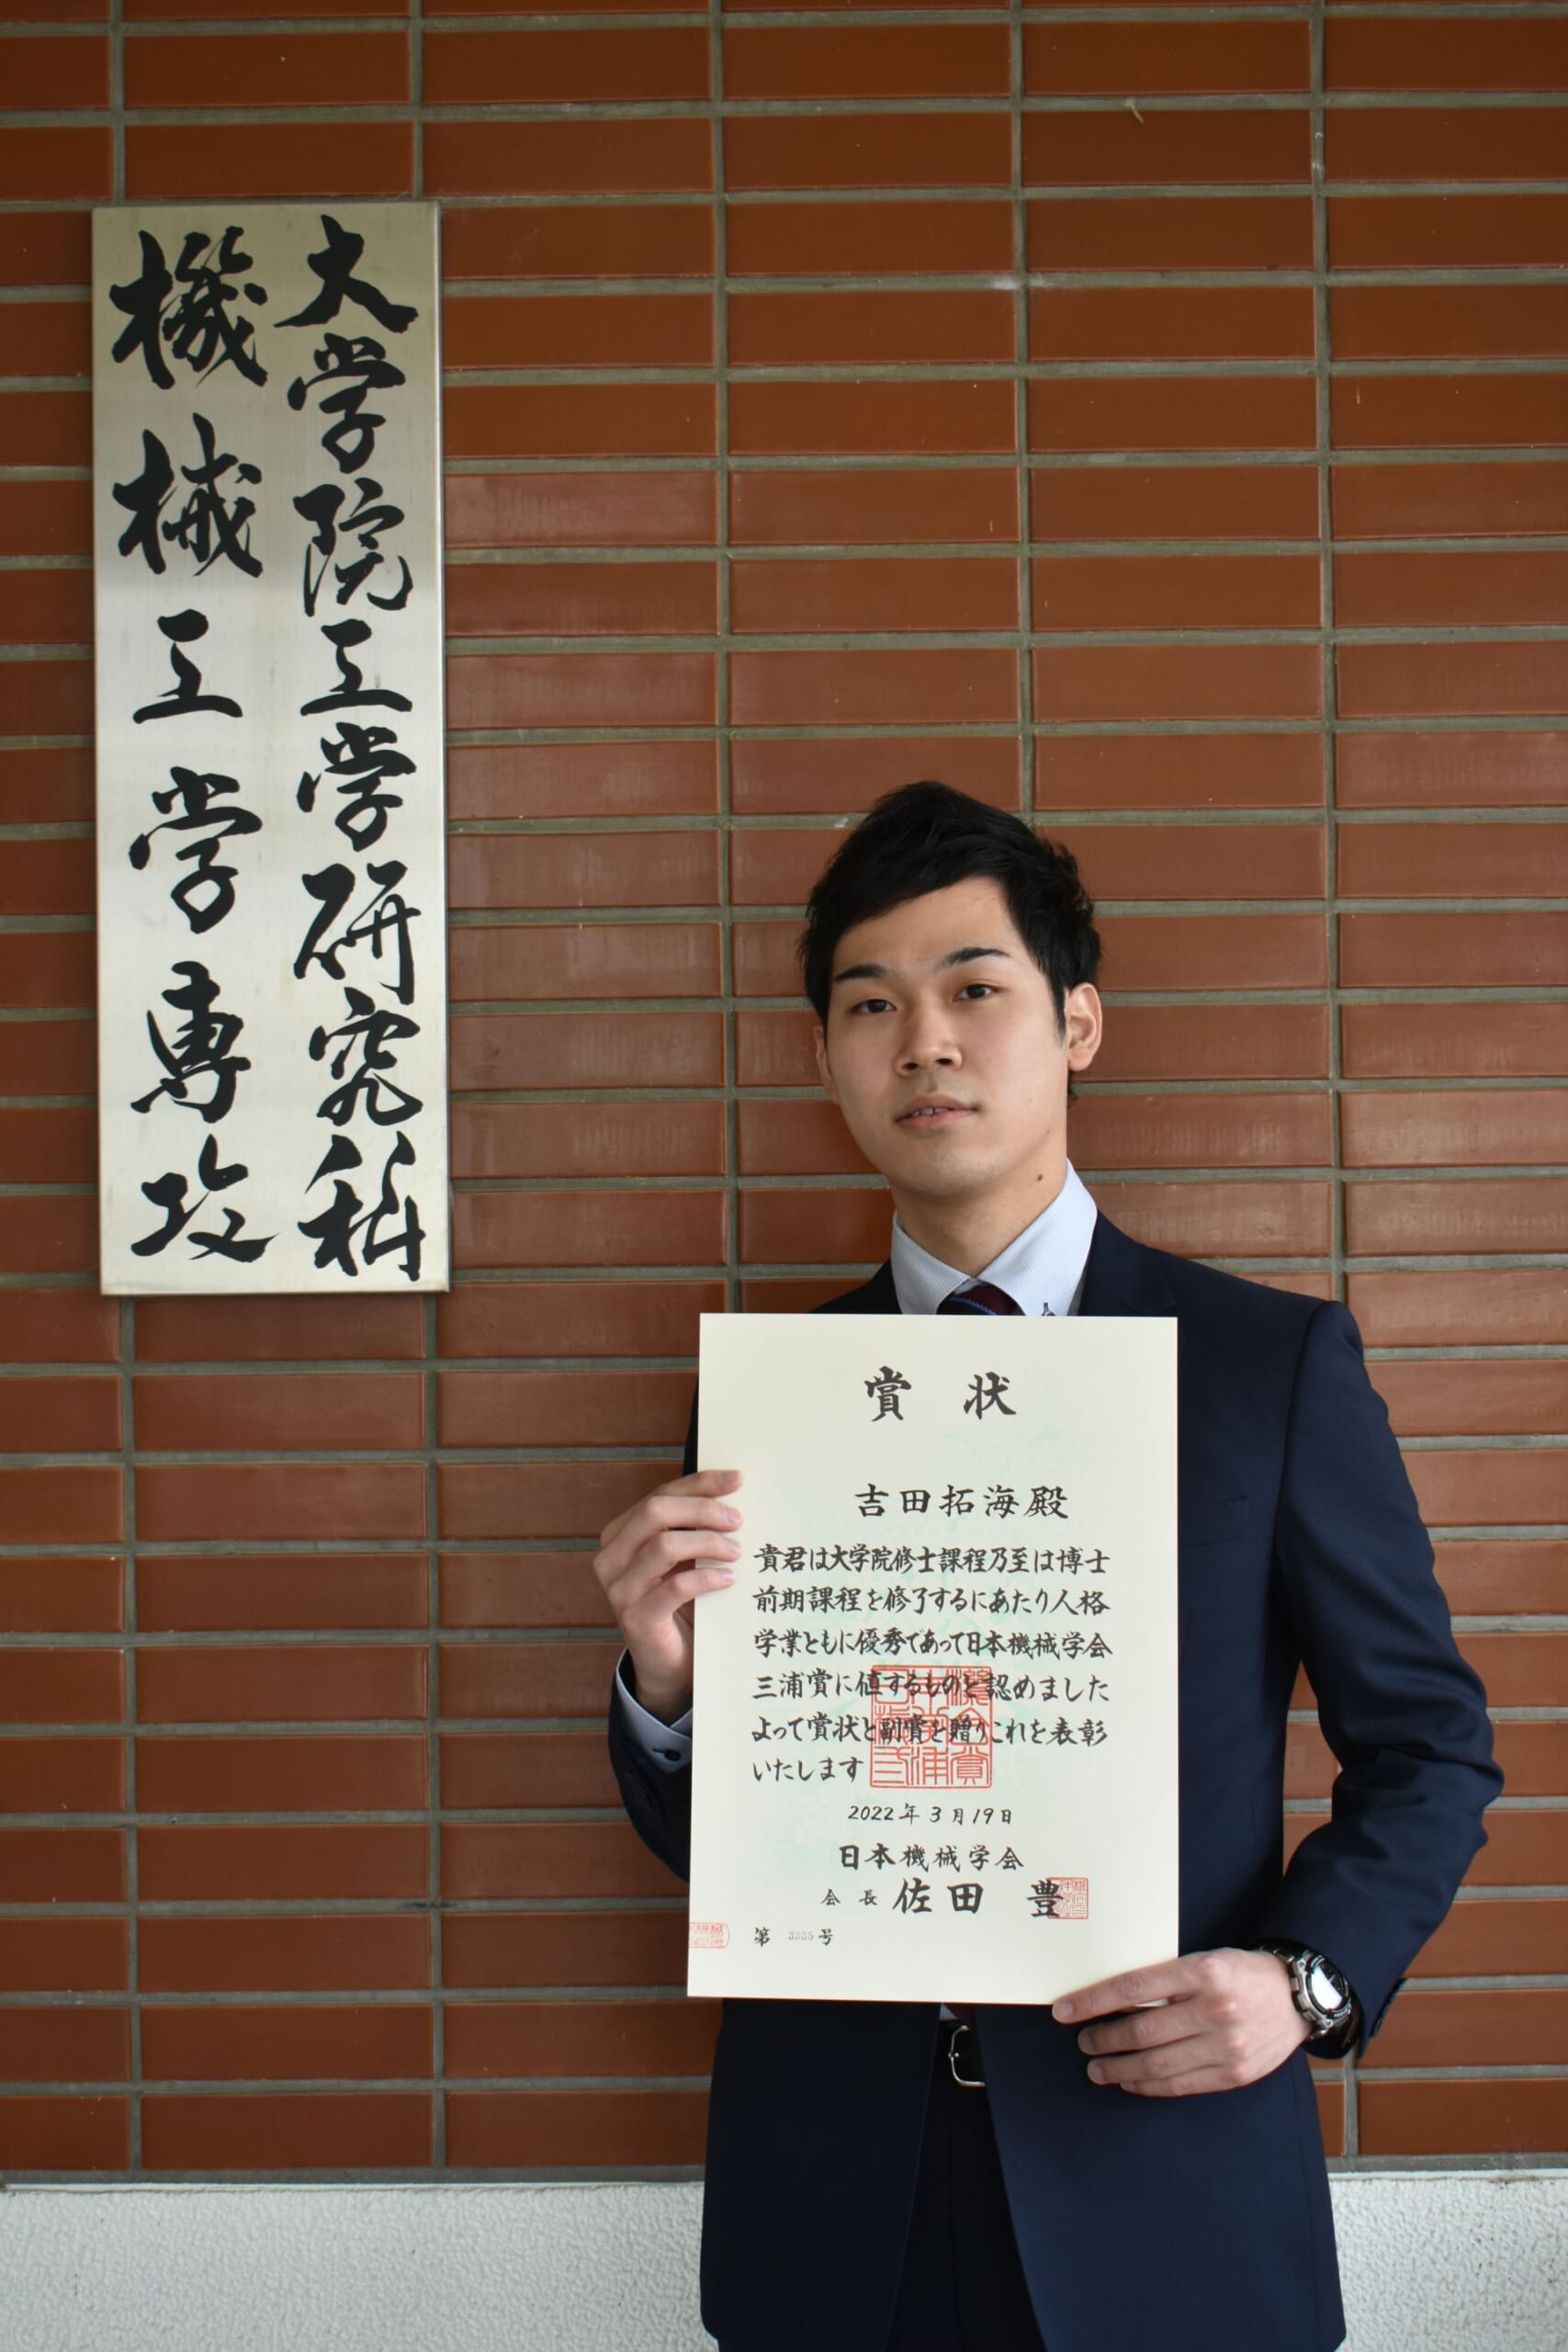 大学院工学研究科
機械工学専攻
賞状
吉田拓海殿
貴君は大学院修士課程乃至は博士
前期課程を修了するにあたり人格
学業ともに優秀であって日本機械学会
三浦賞に値するものと認めました
よって賞状と副賞を贈りこれを表彰
いたします
2022年3月19日
日本機械学会
会長 佐田 豊
第 号